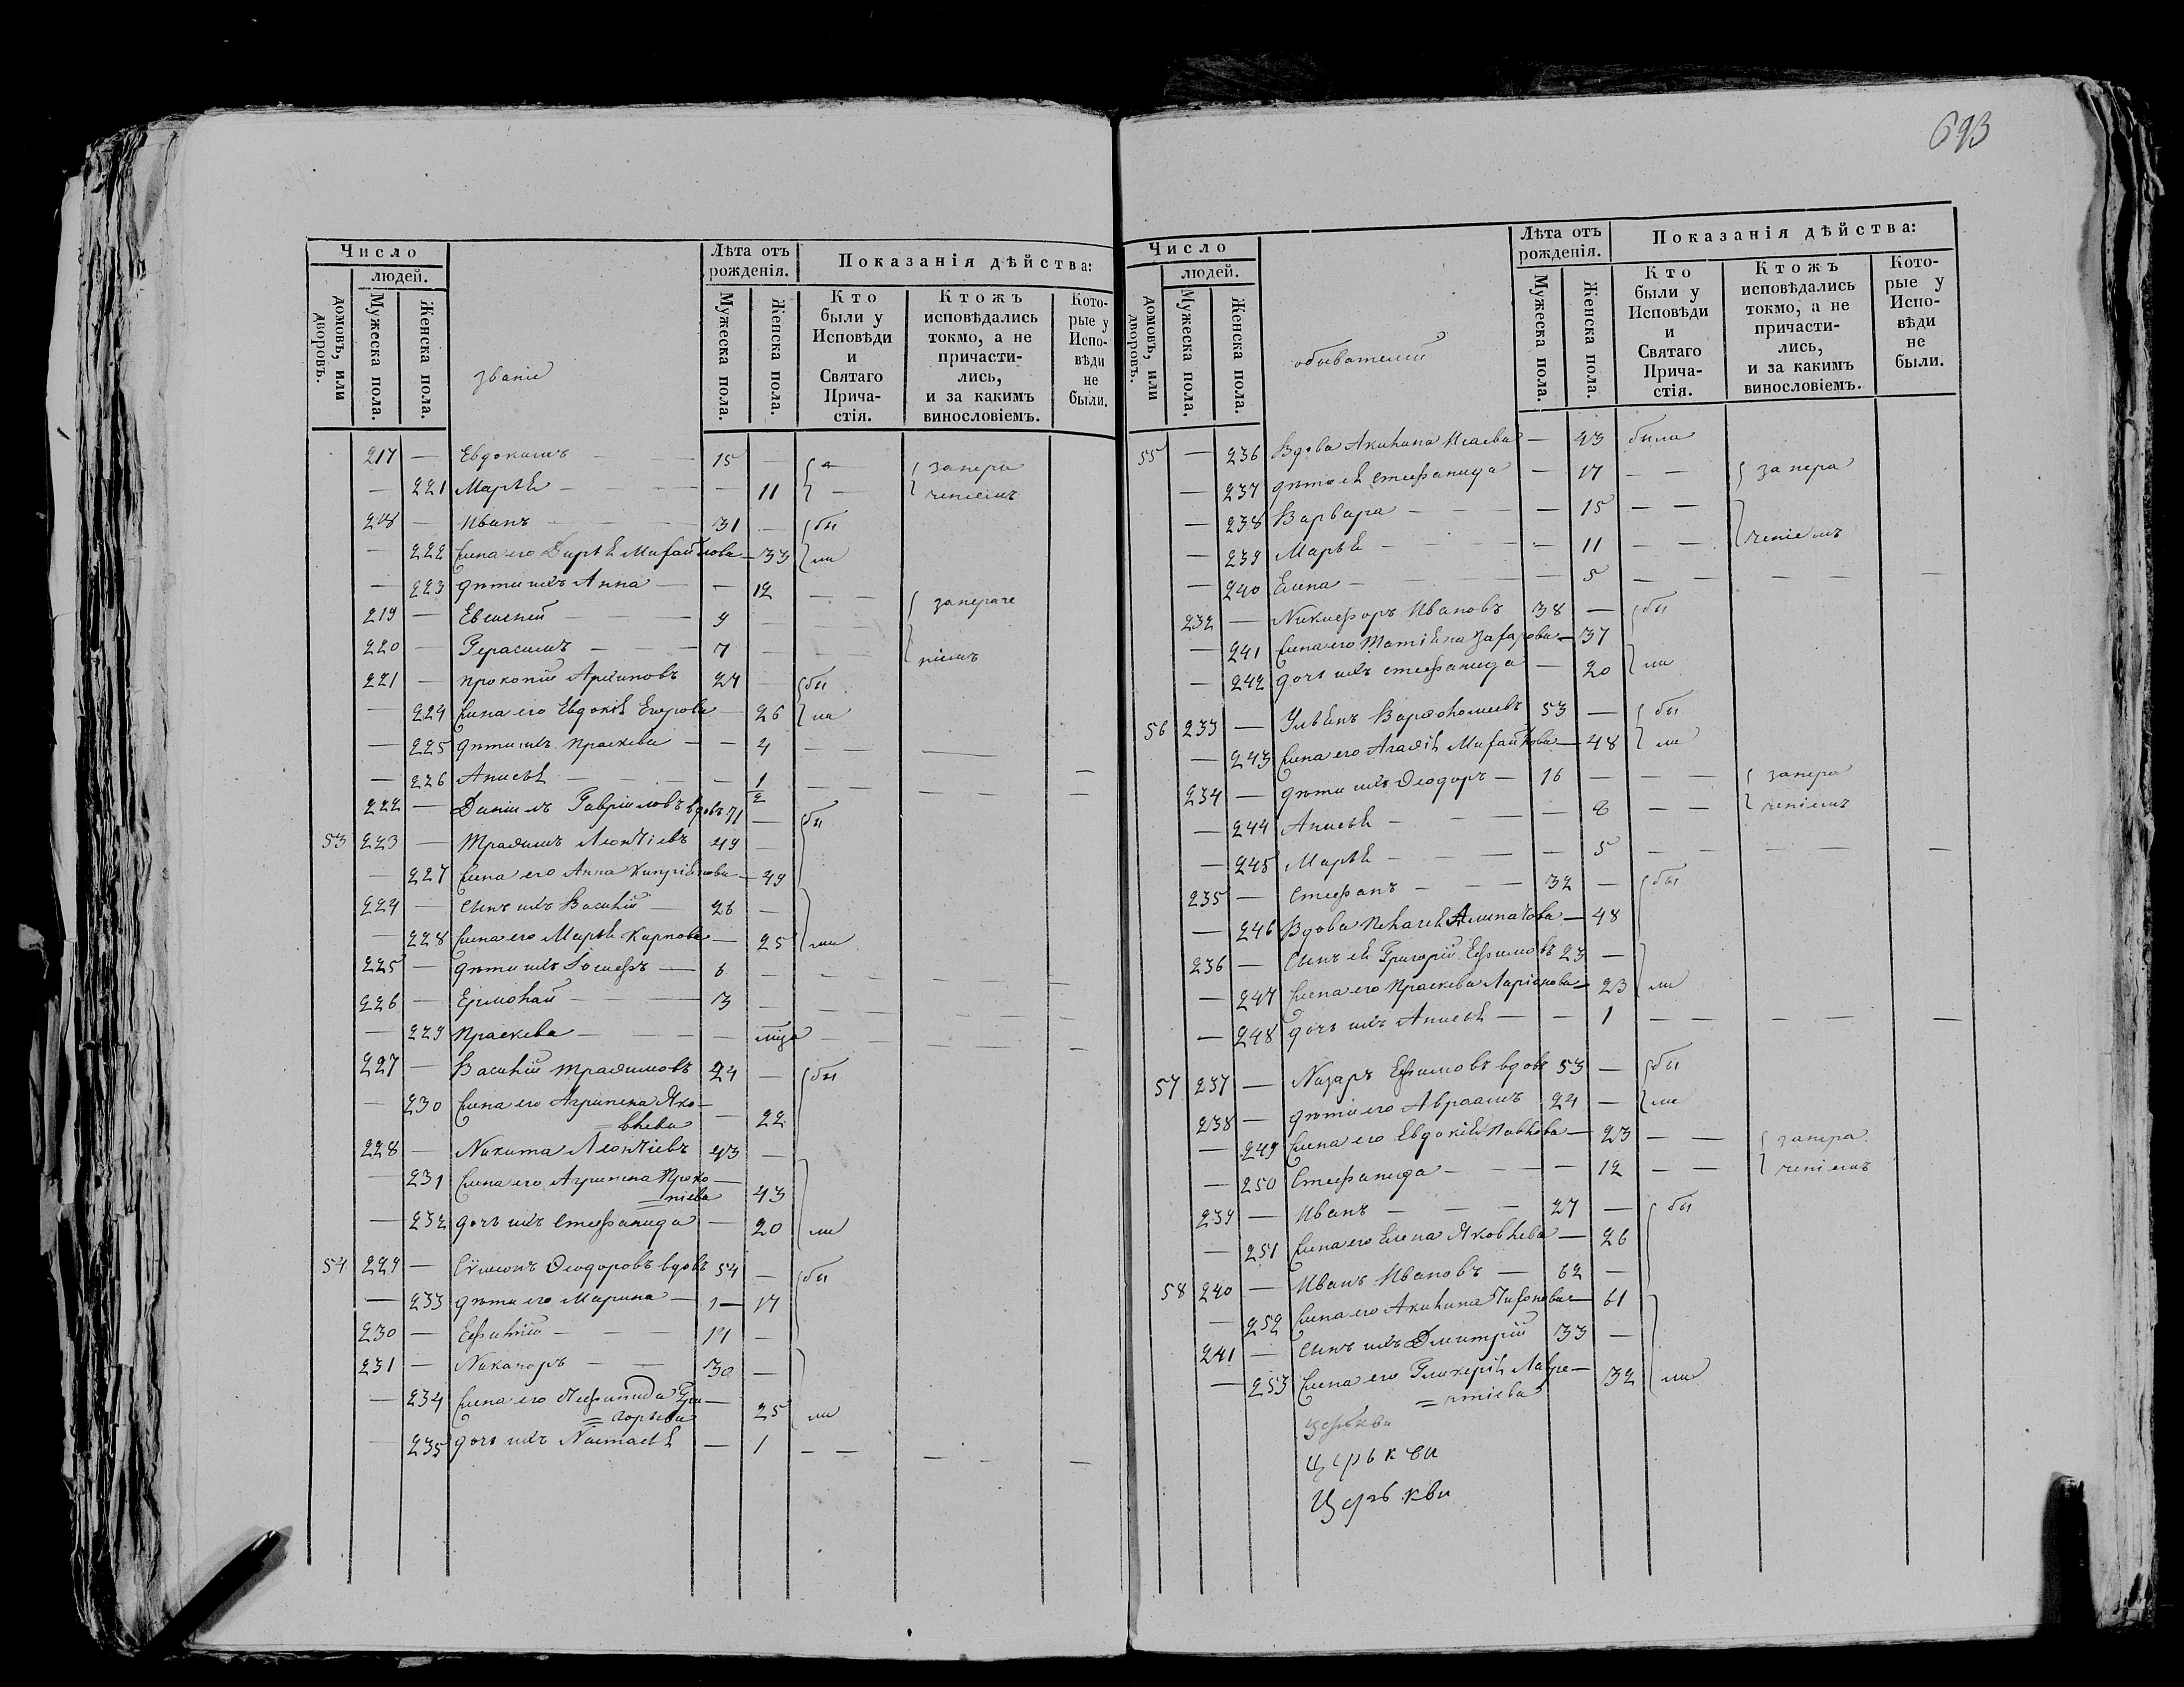 693
Число
людей.
домовъ, или дворовъ.
Мужеска пола.
Женска пола.
званіе
Лѣта отъ рожденія.
Мужеска пола.
Женска пола.
Показанія дѣйства:
Кто были у Исповѣди и Святаго Прича-стія.
Ктожъ исповѣдались токмо, а не причасти-лись, и за какимъ винословіемъ.
Кото-рые у Испо-вѣди не были.
217 — Евдокимъ — 15 — запера
— 221 Марья — — 11 — ченіемъ
218 — Иванъ — 31 — бы
— 222 Жена его Дарья Михайлова — 33 ли
— 223 дѣти ихъ Анна — — 12 — —
219 — Евсигней — 9 — запераче
220 — Герасимъ — 7 — ніемъ
221 — Прокопій Архиповъ 27 — бы
— 224 Жена его Евдокія Егорова — 26 ли
— 225 дѣти ихъ Праскева — — 4 — —
— 226 Анисья — — 1/2 — —
222 — Даніилъ Гавріиловъ вдовъ 71 — бы
53 223 — Трофимъ Леонтіевъ 49 —
— 227 Жена его Анна Кипріянова — 49
224 — сынъ ихъ Василій — 26 —
— 228 Жена его Марья Карпова — 25 ли
225 — дѣти ихъ Іосифъ — 6 — —
226 — Ермолай — 3 — —
— 229 Праскева — —
227 — Василій Трофимовъ 24 — бы
— 230 Жена его Агрипена Яко-
=влева — 22
228 — Никита Леонтіевъ 43 —
— 231 Жена его Агрипена Проко-
=піева 43
— 232 дочь ихъ Стефанида — 20 ли
54 229 — Сѵмеонъ Ѳеодоровъ вдовъ 54 — бы
— 233 дѣти его Марина — — 17
230 — Ефимій — 19 —
231 — Никаноръ — 30 —
— 234 Жена его Гри-
=горьева 25 ли
— 235 дочь ихъ Настасья — 1 — —
Число
людей.
домовъ, или дворовъ.
Мужеска пола.
Женска пола.
обывателей
Лѣта отъ рожденія.
Мужеска пола.
Женска пола.
Показанія дѣйства:
Кто были у Исповѣди и Святаго Прича-стія.
Ктожъ исповѣдались токмо, а не причасти-лись, и за какимъ винословіемъ.
Кото-рые у Испо-вѣди не были.
55 — 236 Вдова Акилина Исаева — 43 была
— 237 дѣти ея Стефанида — 17 — — запера
— 238 Варвара — — 15 — —
— 239 Марья — — 11 — — ченіемъ
— 240 Елена — — 5 — —
232 — Никифоръ Ивановъ 38 — бы
— 241 Жена его Татіяна Захарова — 37
— 242 дочь ихъ Стефанида — 20 ли
56 233 — Ульянъ Варфоломеевъ 53 — бы
— 243 Жена его Агафія Михайлова — 48 ли
234 — дѣти ихъ Ѳеодоръ — 16 — — запера
— 244 Анисья — — 8 — — ченіемъ
— 245 Марья — — 5 — —
235 — Стефанъ — 32 — бы
— 246 Вдова Пелагея — 48
236 — Сынъ ея Григорій Ефимовъ 23 —
— 247 Жена его Праскева Ларіонова — 23 ли
— 248 дочь ихъ Анисья — — 1 — —
57 237 — Назаръ Ефимовъ вдовъ 53 — бы
238 — дѣти его Авраамъ 24 — ли
— 249 Жена его Евдокія Павлова — 23 — — запера
— 250 Стефанида — — 12 — — ченіемъ
239 — Иванъ — 27 — бы
— 251 Жена его Елена Яковлева — 26
58 240 — Иванъ Ивановъ — 62 —
— 252 Жена его Акилина Тихонова — 61
241 — сынъ ихъ Дмитрій 33 —
— 253 Жена его Гликерія Лавре-
=нтіева 32 ли
Церькви
Церькви
Церькви